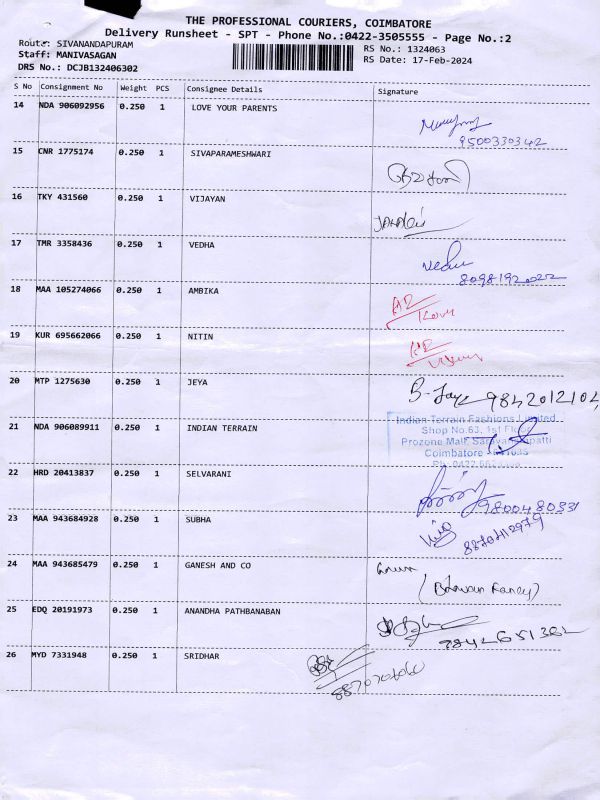 THE PROFESSIONAL COURIERS, COIMBATORE
Delivery Runsheet - SPT - Phone No.:0422-3505555 - Page No.:2
Route: SIVANANDAPURAM
RS No.: 1324063
Staff: MANIVASAGAN
RS Date: 17-Feb-2024
DRS No.: DCJB132406302
S No Consignment No Weight PCS Consignee Details Signature
14 NDA 906092956 0.250 1 LOVE YOUR PARENTS
9500330342
15 CNR 1775174 0.250 1 SIVAPARAMESHWARI
16 TKY 431560 0.250 1 VIJAYAN
17 TMR 3358436 0.250 1 VEDHA
Vedha
8098192022
18 MAA 105274066 0.250 1 AMBIKA
19 KUR 695662066 0.250 1 NITIN
20 MTP 1275630 0.250 1 JEYA
B. Jaya 9842012104
21 NDA 906089911 0.250 1 INDIAN TERRAIN
Indian Terrain Fashions Limited
Shop No.63, 1st Floor
Prozone Mall,
Coimbatore
22 HRD 20413837 0.250 1 SELVARANI
9800480831
23 MAA 943684928 0.250 1 SUBHA
24 MAA 943685479 0.250 1 GANESH AND CO
25 EDQ 20191973 0.250 1 ANANDHA PATHBANABAN
9842651382
26 MYD 7331948 0.250 1 SRIDHAR